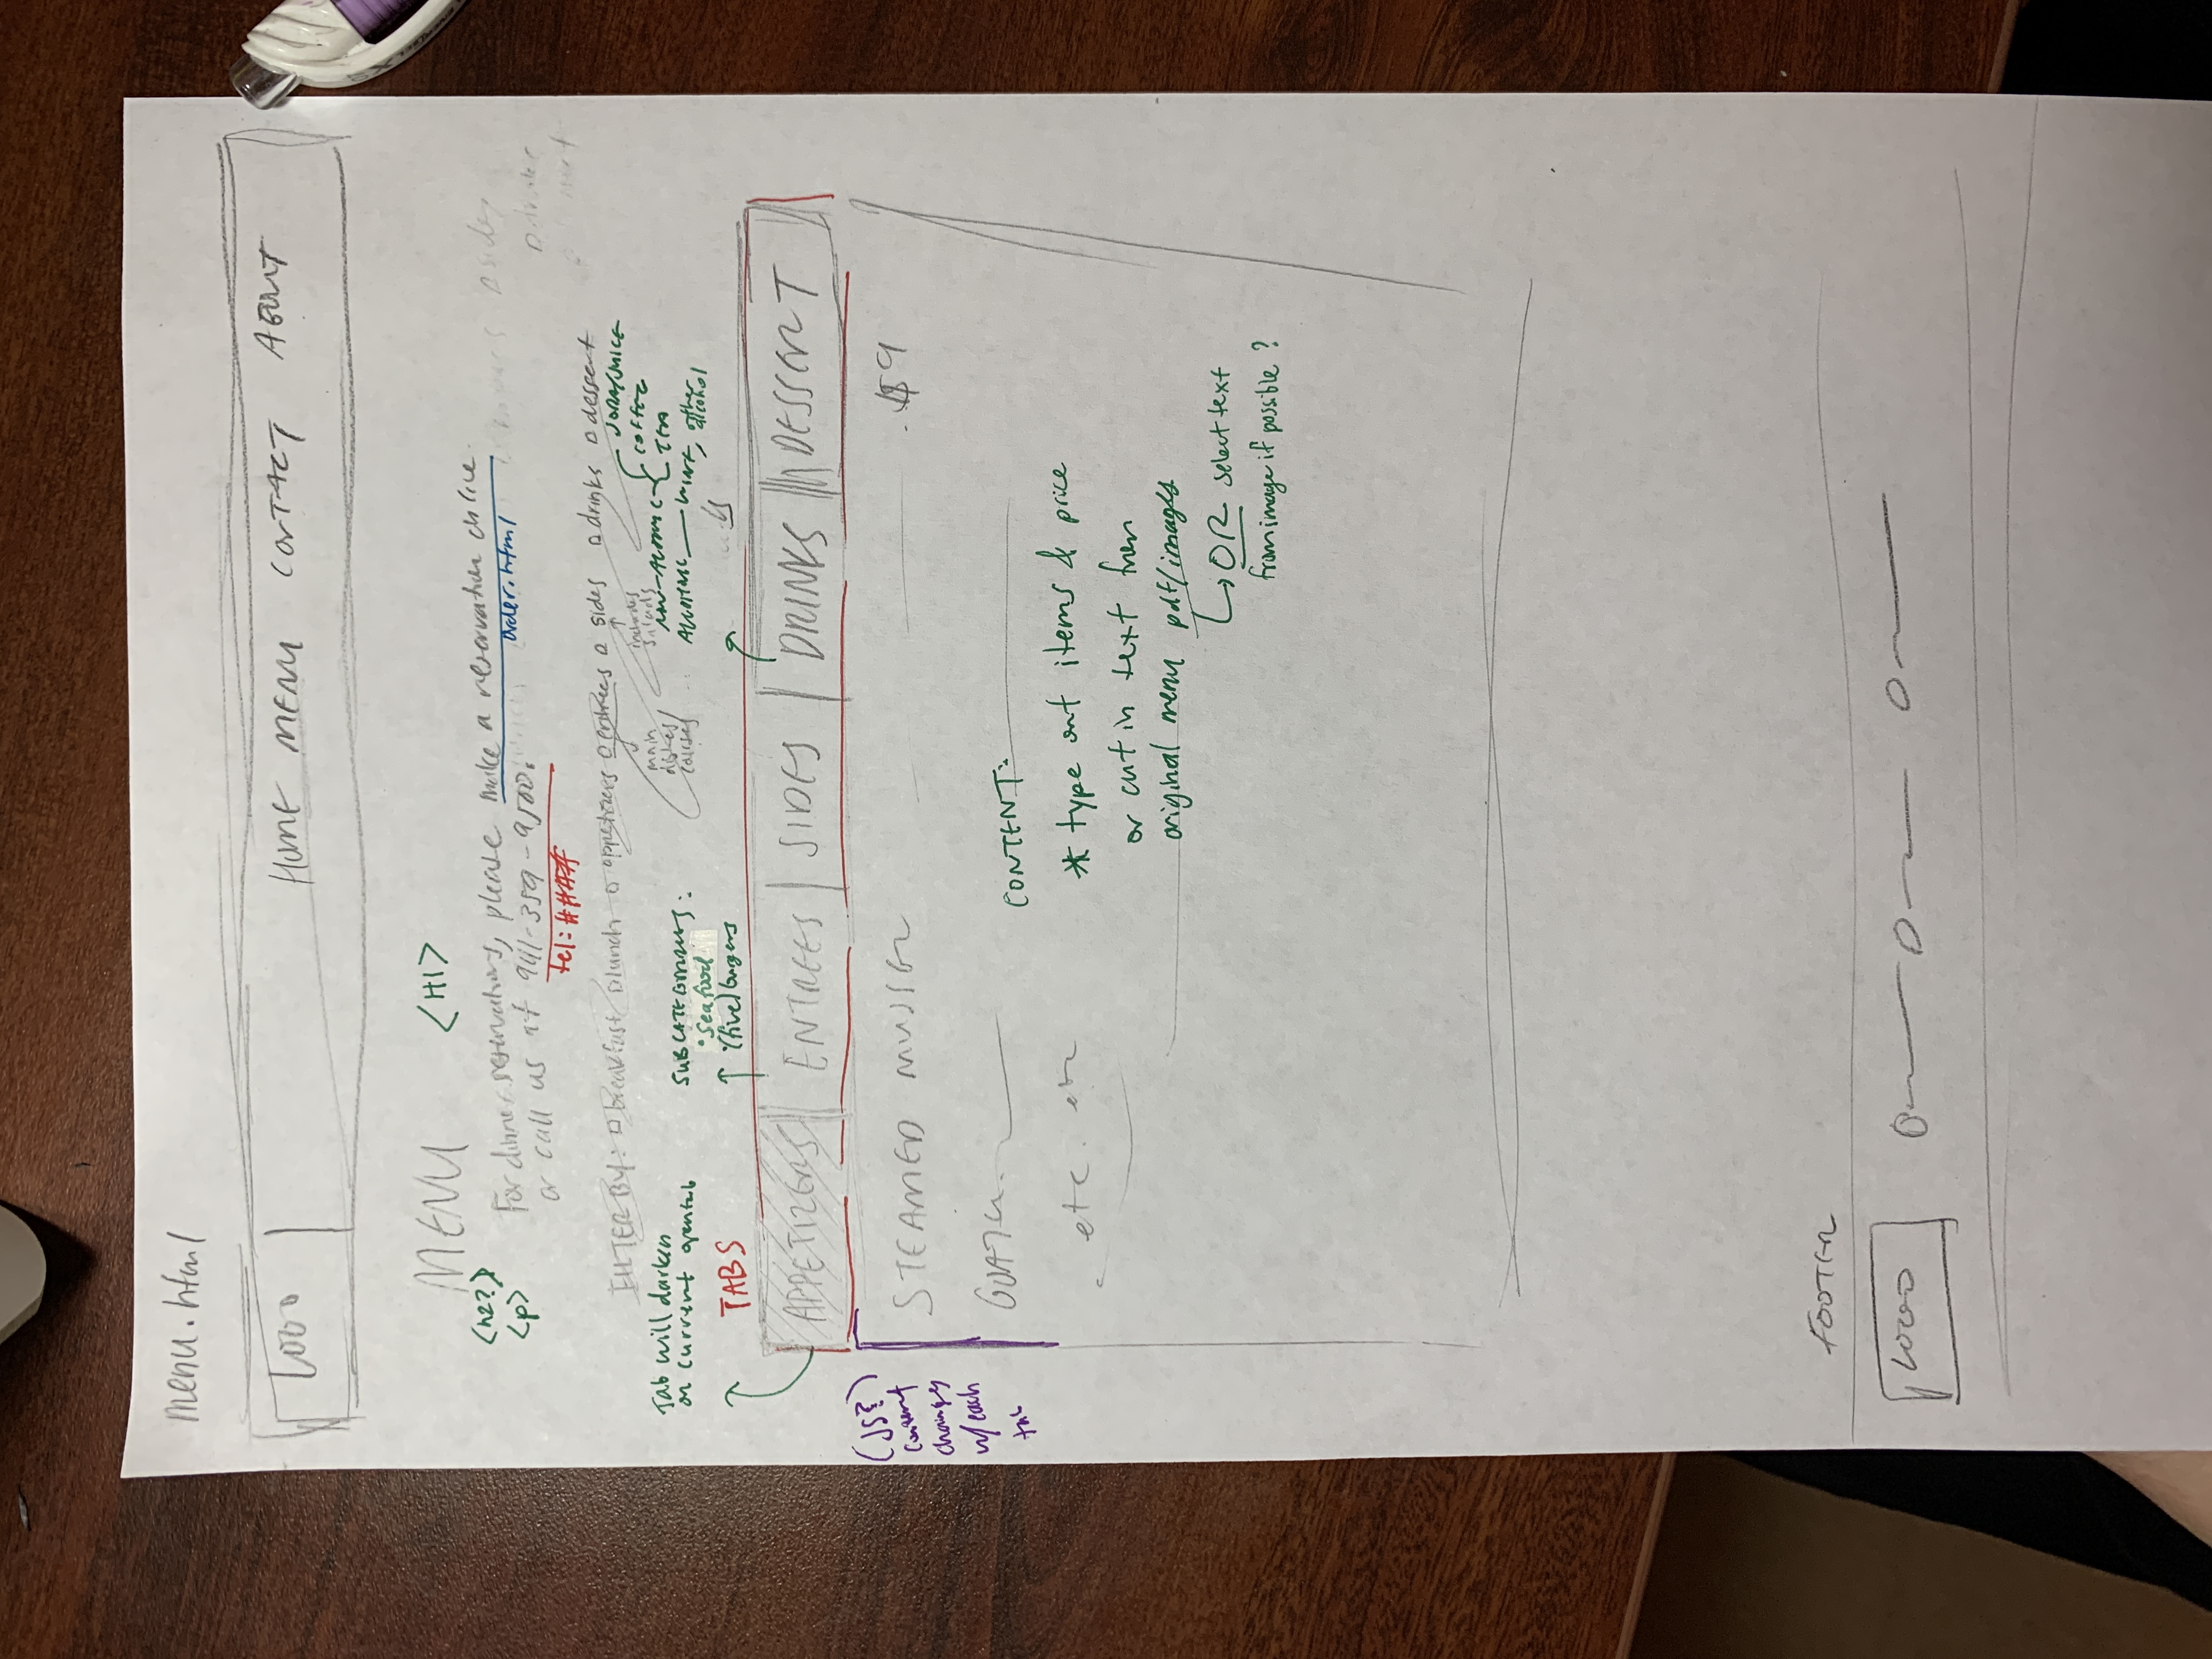 menu.html
LOGO
HOME MENU CONTACT ABOUT
MENU <H1>
<h2?>
<p>
For dinner reservations, please make a reservation online.
order.html
or call us at 941-359-9500.
tel: ####
sides
FILTER BY: breakfast lunch appetizers entrees sides drinks dessert
main dishes
includes salads
SODA/JUICE
COFFEE
TEA
NON-ALCOHOLIC
ALCOHOLIC — WINE, other alcohol
Tab will darken
on current open tab
SUBCATEGORIES:
• Seafood
• (five) burgers
TABS
APPETIZERS ENTREES SIDES DRINKS DESSERT
(JS?)
content
changes
w/each
tab
STEAMED MUSSEL $9
etc. etc
CONTENT:
* type out items & price
or cut in text from
original menu pdf/images
OR select text
from image if possible?
FOOTER
LOGO